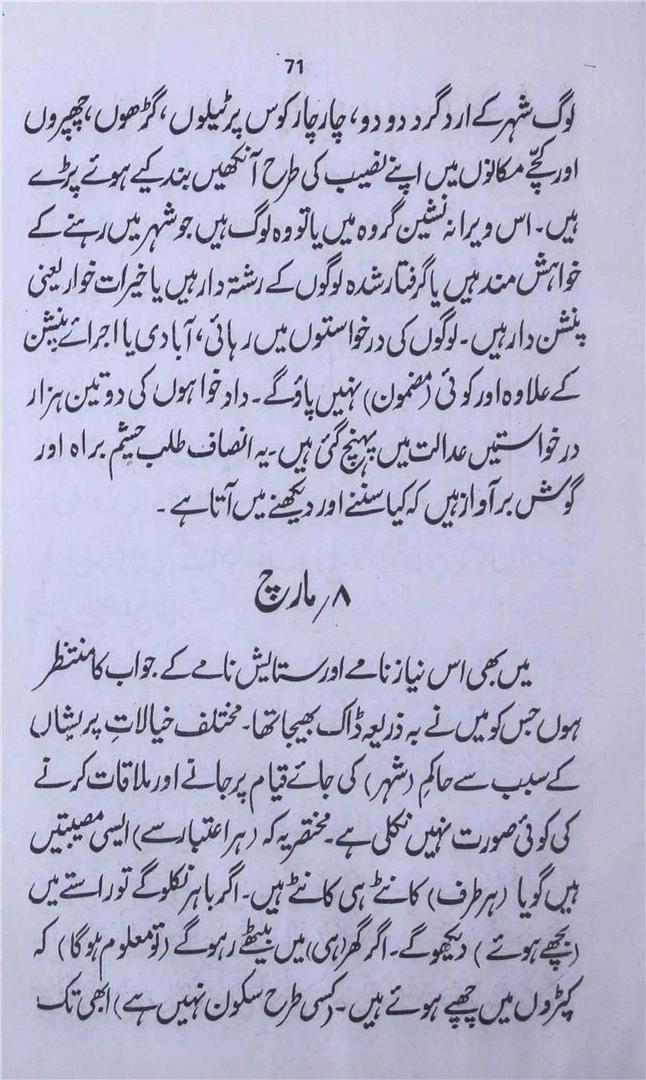 71
لوگ شہر کے ارد گرد دو دو، چار چار کوس پر ٹیلوں، گڑھوں، چھپروں
اور کچّے مکانوں میں اپنے نصیب کی طرح آنکھیں بند کیے ہوئے پڑے
ہیں۔ اس ویرانہ نشین گروہ میں یا تو وہ لوگ ہیں جو شہر میں رہنے کے
خواہش مند ہیں یا گرفتار شدہ لوگوں کے رشتہ دار ہیں یا خیرات خوار یعنی
پنشن دار ہیں۔ لوگوں کی درخواستوں میں رہائی، آبادی یا اجرائے پنشن
کے علاوہ اور کوئی (مضمون) نہیں پاؤ گے۔ داد خواہوں کی دو تین ہزار
درخواستیں عدالت میں پہنچ گئی ہیں۔ یہ انصاف طلب چشم براہ اور
گوش بر آواز ہیں کہ کیا سننے اور دیکھنے میں آتا ہے۔
۸/ مارچ
میں بھی اس نیاز نامے اور ستایش نامے کے جواب کا منتظر
ہوں جس کو میں نے بہ ذریعہ ڈاک بھیجا تھا۔ مختلف خیالاتِ پریشاں
کے سبب سے حاکمِ (شہر) کی جائے قیام پر جانے اور ملاقات کرنے
کی کوئی صورت نہیں نکلی ہے۔ مختصر یہ کہ (ہر اعتبار سے) ایسی مصیبتیں
ہیں گویا (ہر طرف) کانٹے ہی کانٹے ہیں۔ اگر باہر نکلو گے تو راستے میں
(بچھے ہوئے) دیکھو گے۔ اگر گھر (ہی) میں بیٹھے رہو گے (تو معلوم ہو گا) کہ
کپڑوں میں چھپے ہوئے ہیں۔ (کسی طرح سکون نہیں ہے) ابھی تک